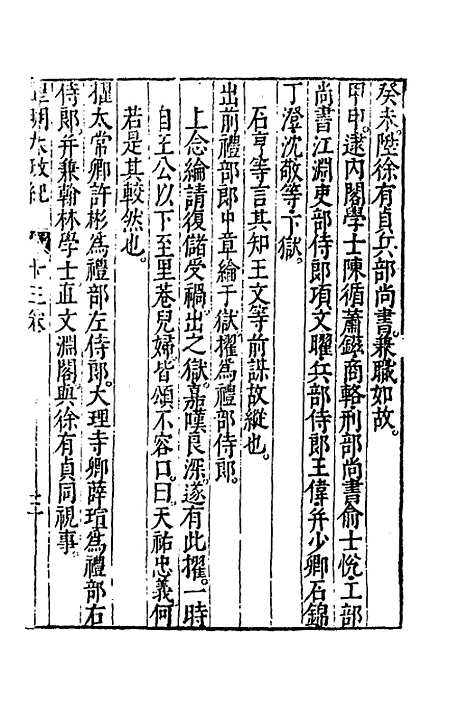 癸未。陞徐有貞兵部尚書。兼職如故。
甲申。逮內閣學士陳循蕭鎡商輅。刑部尚書俞士悅。工部
尚書江淵。吏部侍郎項文曜。兵部侍郎王偉。并少卿石錦
丁澄沈敬等下獄。
石亨等言其知王文等前謀故縱也。
出前禮部郎中章綸于獄。擢為禮部侍郎。
上念綸請復儲受禍。出之獄。嘉嘆良深。遂有此擢。一時
自王公以下至里巷兒婦。皆頌不容口。曰。天祐忠義何
若是其較然也。
擢太常卿許彬為禮部左侍郎。大理寺卿薛瑄為禮部右
侍郎。并兼翰林學士。直文淵閣。與徐有貞同視事。
皇明大政紀 十三卷 三